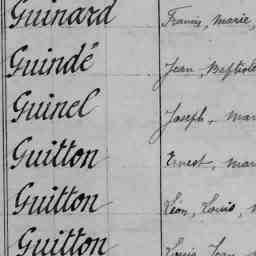 Guinard Francis, Marie,
Guindé Jean, Baptiste
Guinel Joseph, Mar
Guitton Ernest, mar
Guitton Léon, Louis,
Guitton Louis, Jean